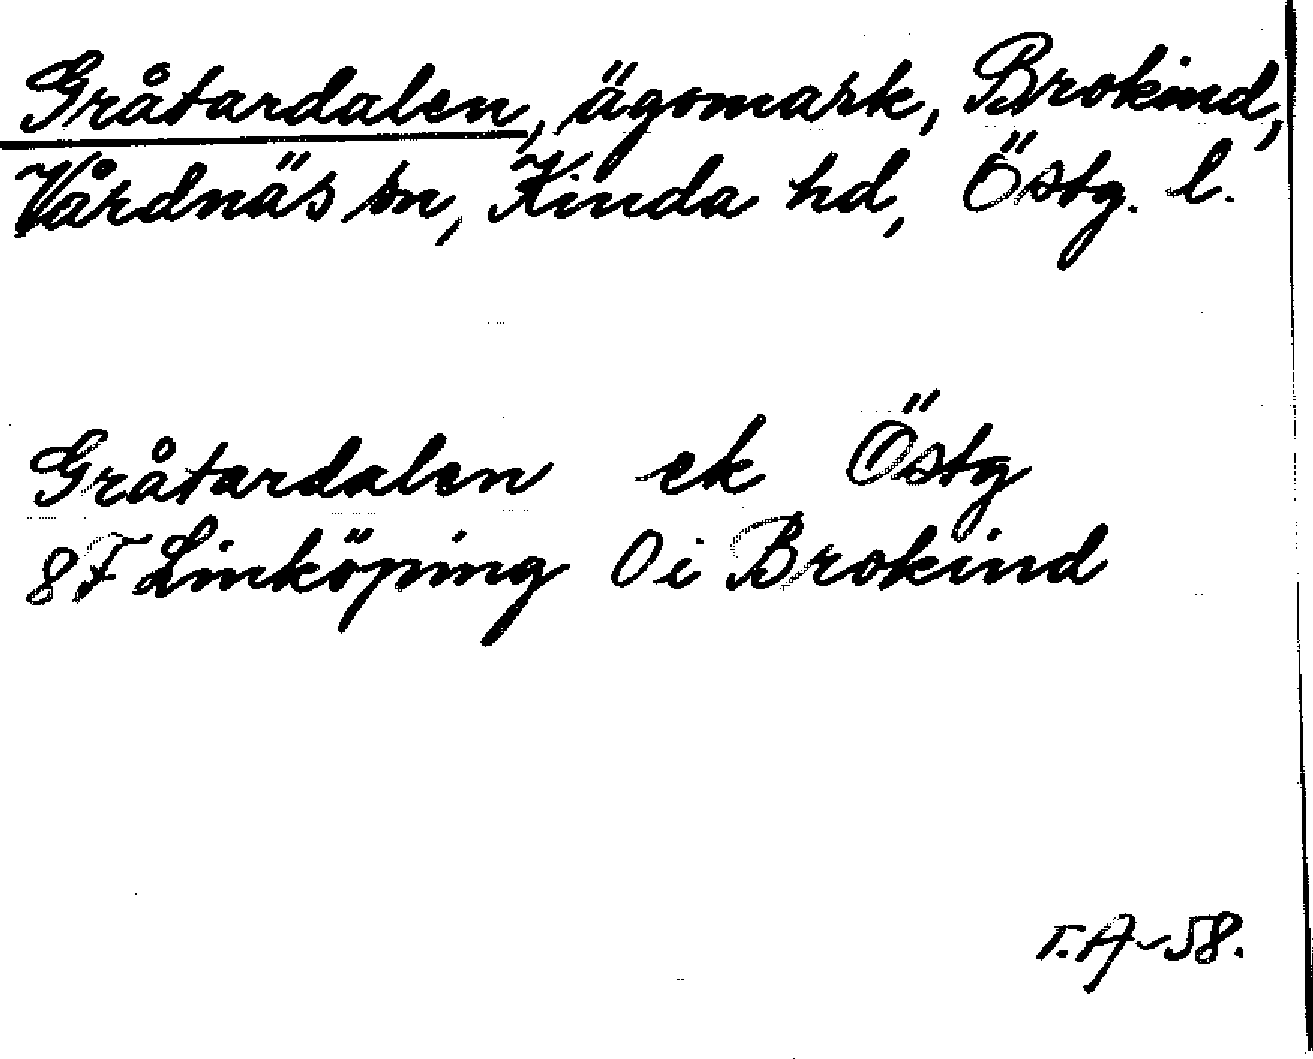 Gråtardalen, ägomark, Brokind,
Vårdnäs sn, Kinda hd, Östg. l.
Gråtardalen ek Östg
8F Linköping 0i Brokind
T.A-58.